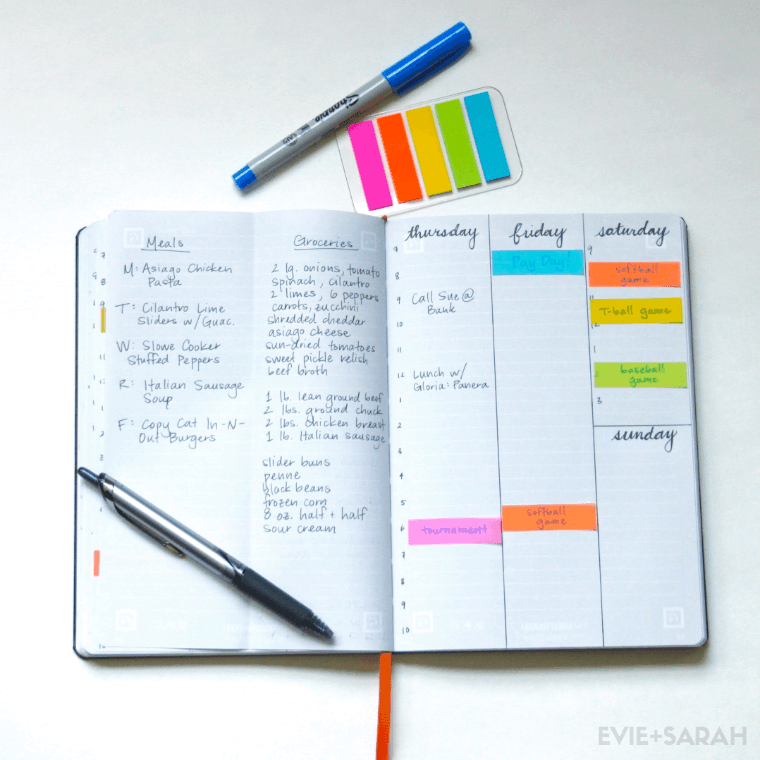 Sharpie
Meals
M: Asiago Chicken
Pasta
T: Cilantro Lime
Sliders w/Guac.
W: Slowe Cooker
Stuffed Peppers
R: Italian Sausage
Soup
F: Copy Cat In-N-
Out Burgers
Groceries
2 lg. onions, tomato
spinach, cilantro
2 limes, 6 peppers
carrots, zucchini
shredded cheddar
asiago cheese
sun-dried tomatoes
sweet pickle relish
beef broth
1 lb. lean ground beef
2 lbs. ground chuck
2 lbs. chicken breast
1 lb. Italian sausage
slider buns
penne
black beans
frozen corn
8 oz. half + half
sour cream
thursday
7
8
9
Call Sue @
Bank
10
11
12
Lunch w/
Gloria: Panera
1
2
3
4
5
6
tournament
7
8
9
10
friday
Pay Day!
softball
game
saturday
9
softball
game
11
T-ball game
12
1
2
baseball
game
3
sunday
EVIE+SARAH